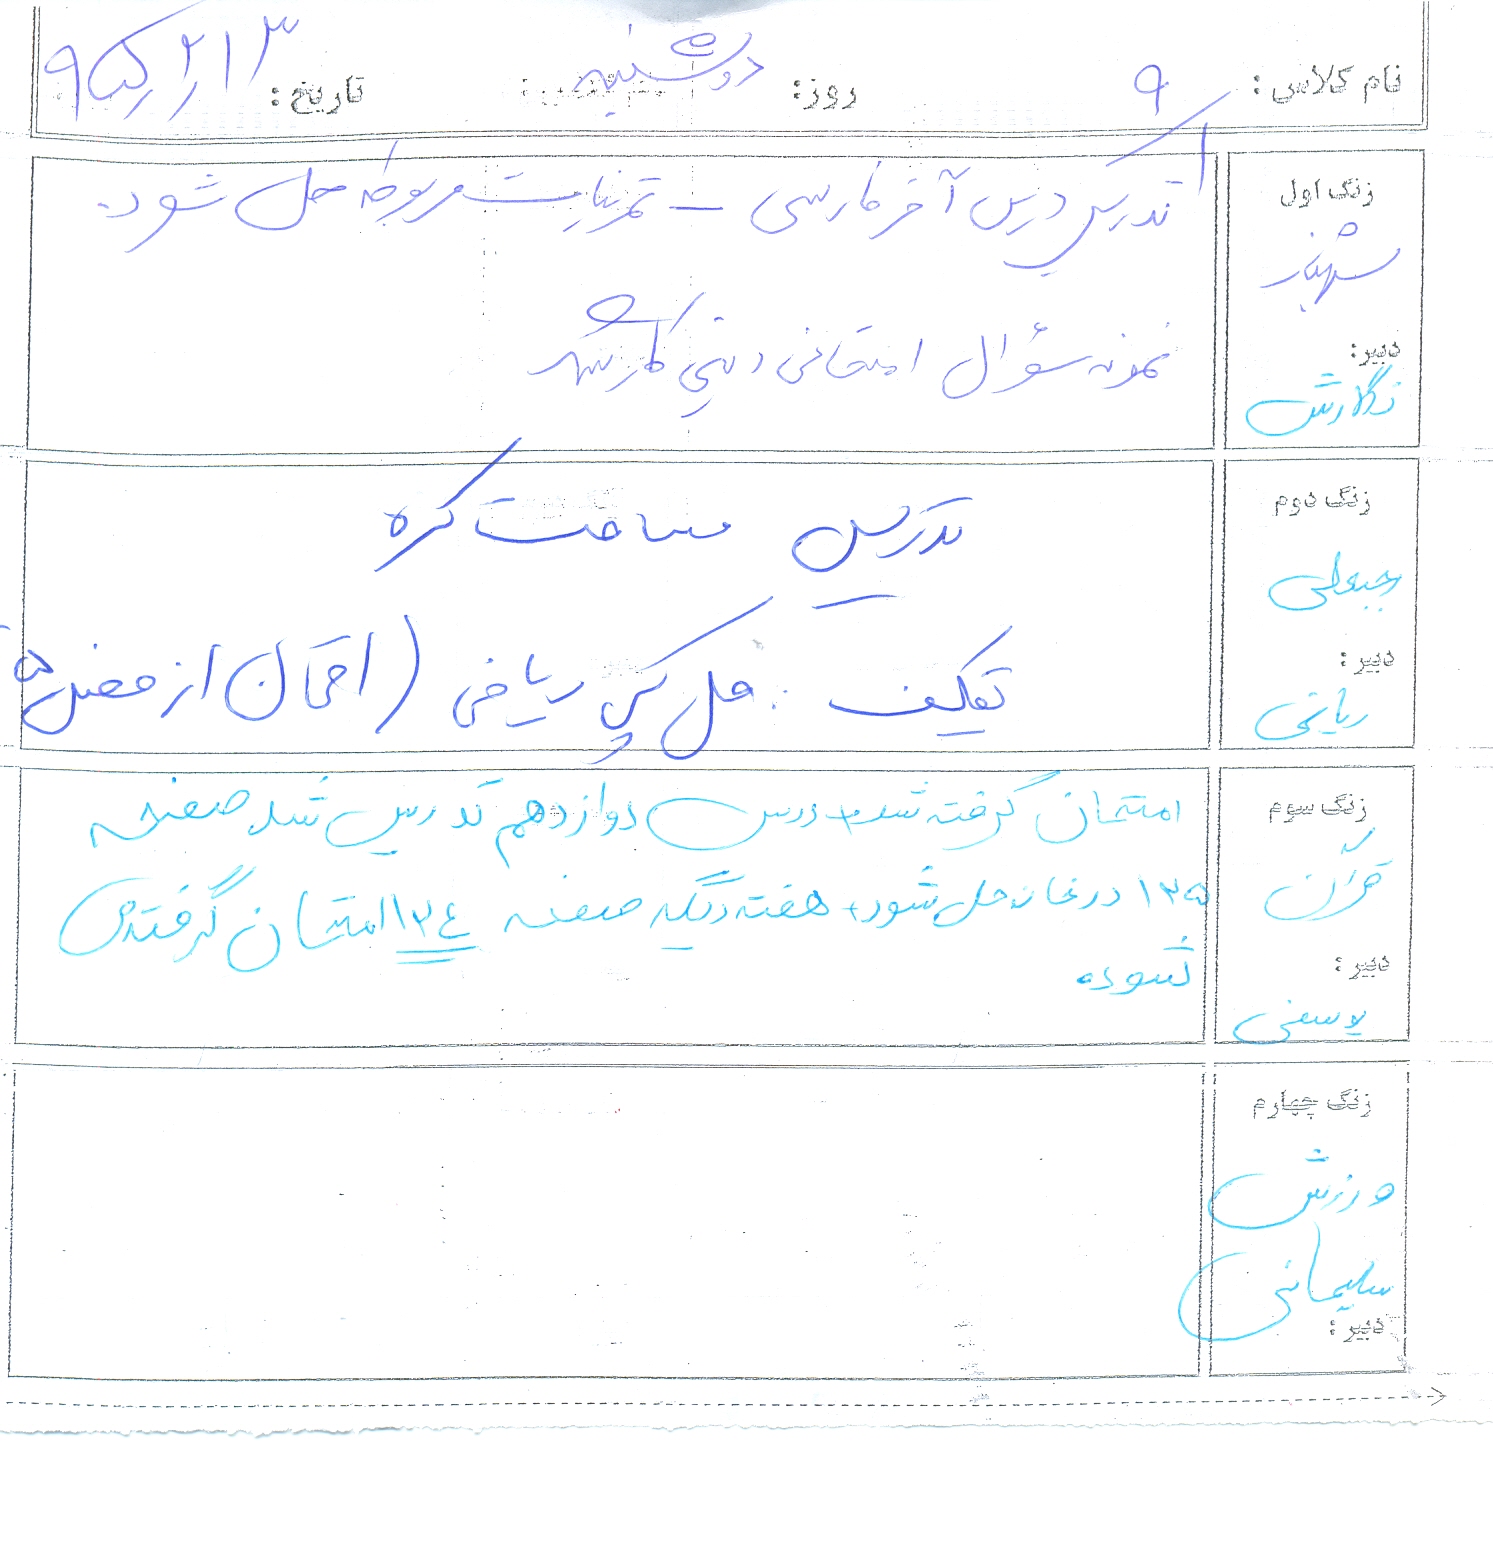 نام کلاس: ۹ روز: دوشنبه تاریخ:
زنگ اول
تدریس درس آخر فارسی – تمرینات مربوطه حل شود.
شهناز
نمونه سؤال امتحانی دینی کار شد
دبیر:
نگارش
زنگ دوم
تدریس مساحت کره
رجبعلی
تکلیف: حل کپی ریاضی (امتحان از فصل ۵
دبیر:
ریاضی
زنگ سوم
امتحان گرفته شد + درس دوازدهم تدریس شد. صفحه
قرآن
۱۳۵ در خانه حل شود + هفته دیگه صفحه ۱۳۴ امتحان گرفته می
شود.
دبیر:
یوسفی
زنگ چهارم
ورزش
سلیمانی
دبیر: